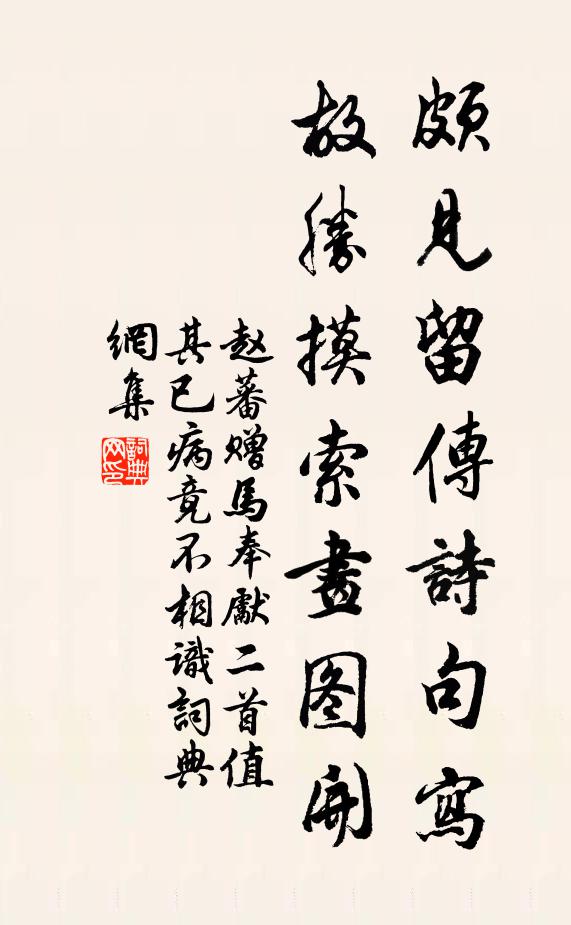 頗見留傳詩句寫
故勝摸索畫图開
赵蕃赠馬奉獻二首值
其已病竟不相識詞典
網集
詞典
网印